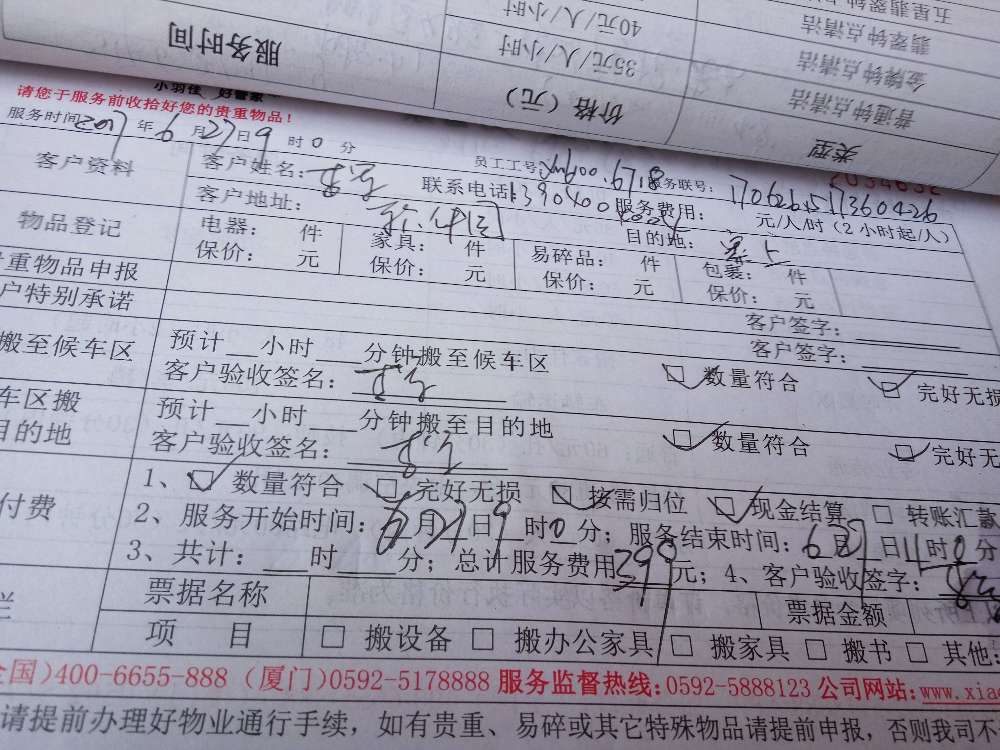 服务时间
价格（元）
类型
40元/人/小时
35元/人/小时
五星翡翠钟点清洁
翡翠钟点清洁
金牌钟点清洁
普通钟点清洁
小羽佳 好管家
请您于服务前收拾好您的贵重物品！
服务时间 2017 年 6 月 27 日 9 时 0 分
员工工号：
服务联号：
客户资料
客户姓名：
联系电话：
服务费用：
元/人/时（2小时起/人）
客户地址：
目的地：
物品登记
电器： 件
家具： 件
易碎品： 件
包裹： 件
保价： 元
保价： 元
保价： 元
保价： 元
重物品申报
客户签字：
户特别承诺
客户签字：
搬至候车区
预计 小时 分钟搬至候车区
客户验收签名：
☑ 数量符合 ☑ 完好无损
车区搬
目的地
预计 小时 分钟搬至目的地
客户验收签名：
☑ 数量符合 ☑ 完好无
付费
1、☑ 数量符合 ☑ 完好无损 ☑ 按需归位 ☑ 现金结算 □ 转账汇款
2、服务开始时间：6月27日9时0分；服务结束时间：6月27日11时0分
3、共计： 时 分；总计服务费用399元；4、客户验收签字：
栏
票据名称
票据金额
项 目
□ 搬设备 □ 搬办公家具 □ 搬家具 □ 搬书 □ 其他：
全国）400-6655-888（厦门）0592-5178888 服务监督热线：0592-5888123 公司网站：www.xia
请提前办理好物业通行手续，如有贵重、易碎或其它特殊物品请提前申报，否则我司不